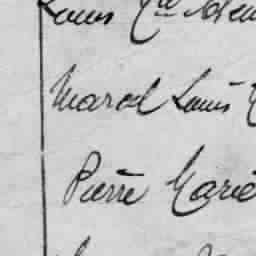 Louis
Marcel Louis
Pierre Marie